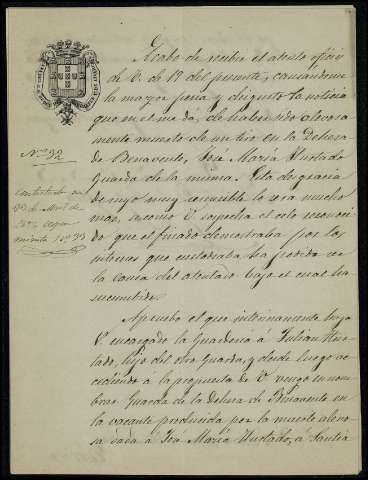 Nº 32
Contestado en
Acabo de recibir el atento oficio
de V. de 17 del presente, causandome
la mayor pena y disgusto la noticia
que en el me dá, de haber sido alevosa
mente muerto de un tiro en la Dehesa
de Benavente, José María Hurtado
Guarda de la misma. Esta desgracia
de suyo muy sensible lo sera mucho
mas, si como V. sospecha el celo conoci
do que el finado demostraba por los
intereses que custodiaba ha podido ser
la causa del atentado bajo el cual ha
sucumbido.
Apruebo el que interinamente haya
V. encargado la Guarderia á Julian Hur
tado, hijo del otro Guarda, y desde luego ac
cediendo a la propuesta de V. vengo en nom
brar Guarda de la Dehesa de Benavente en
la vacante producida por la muerte alevo
sa dada á José María Hurtado, á Santia